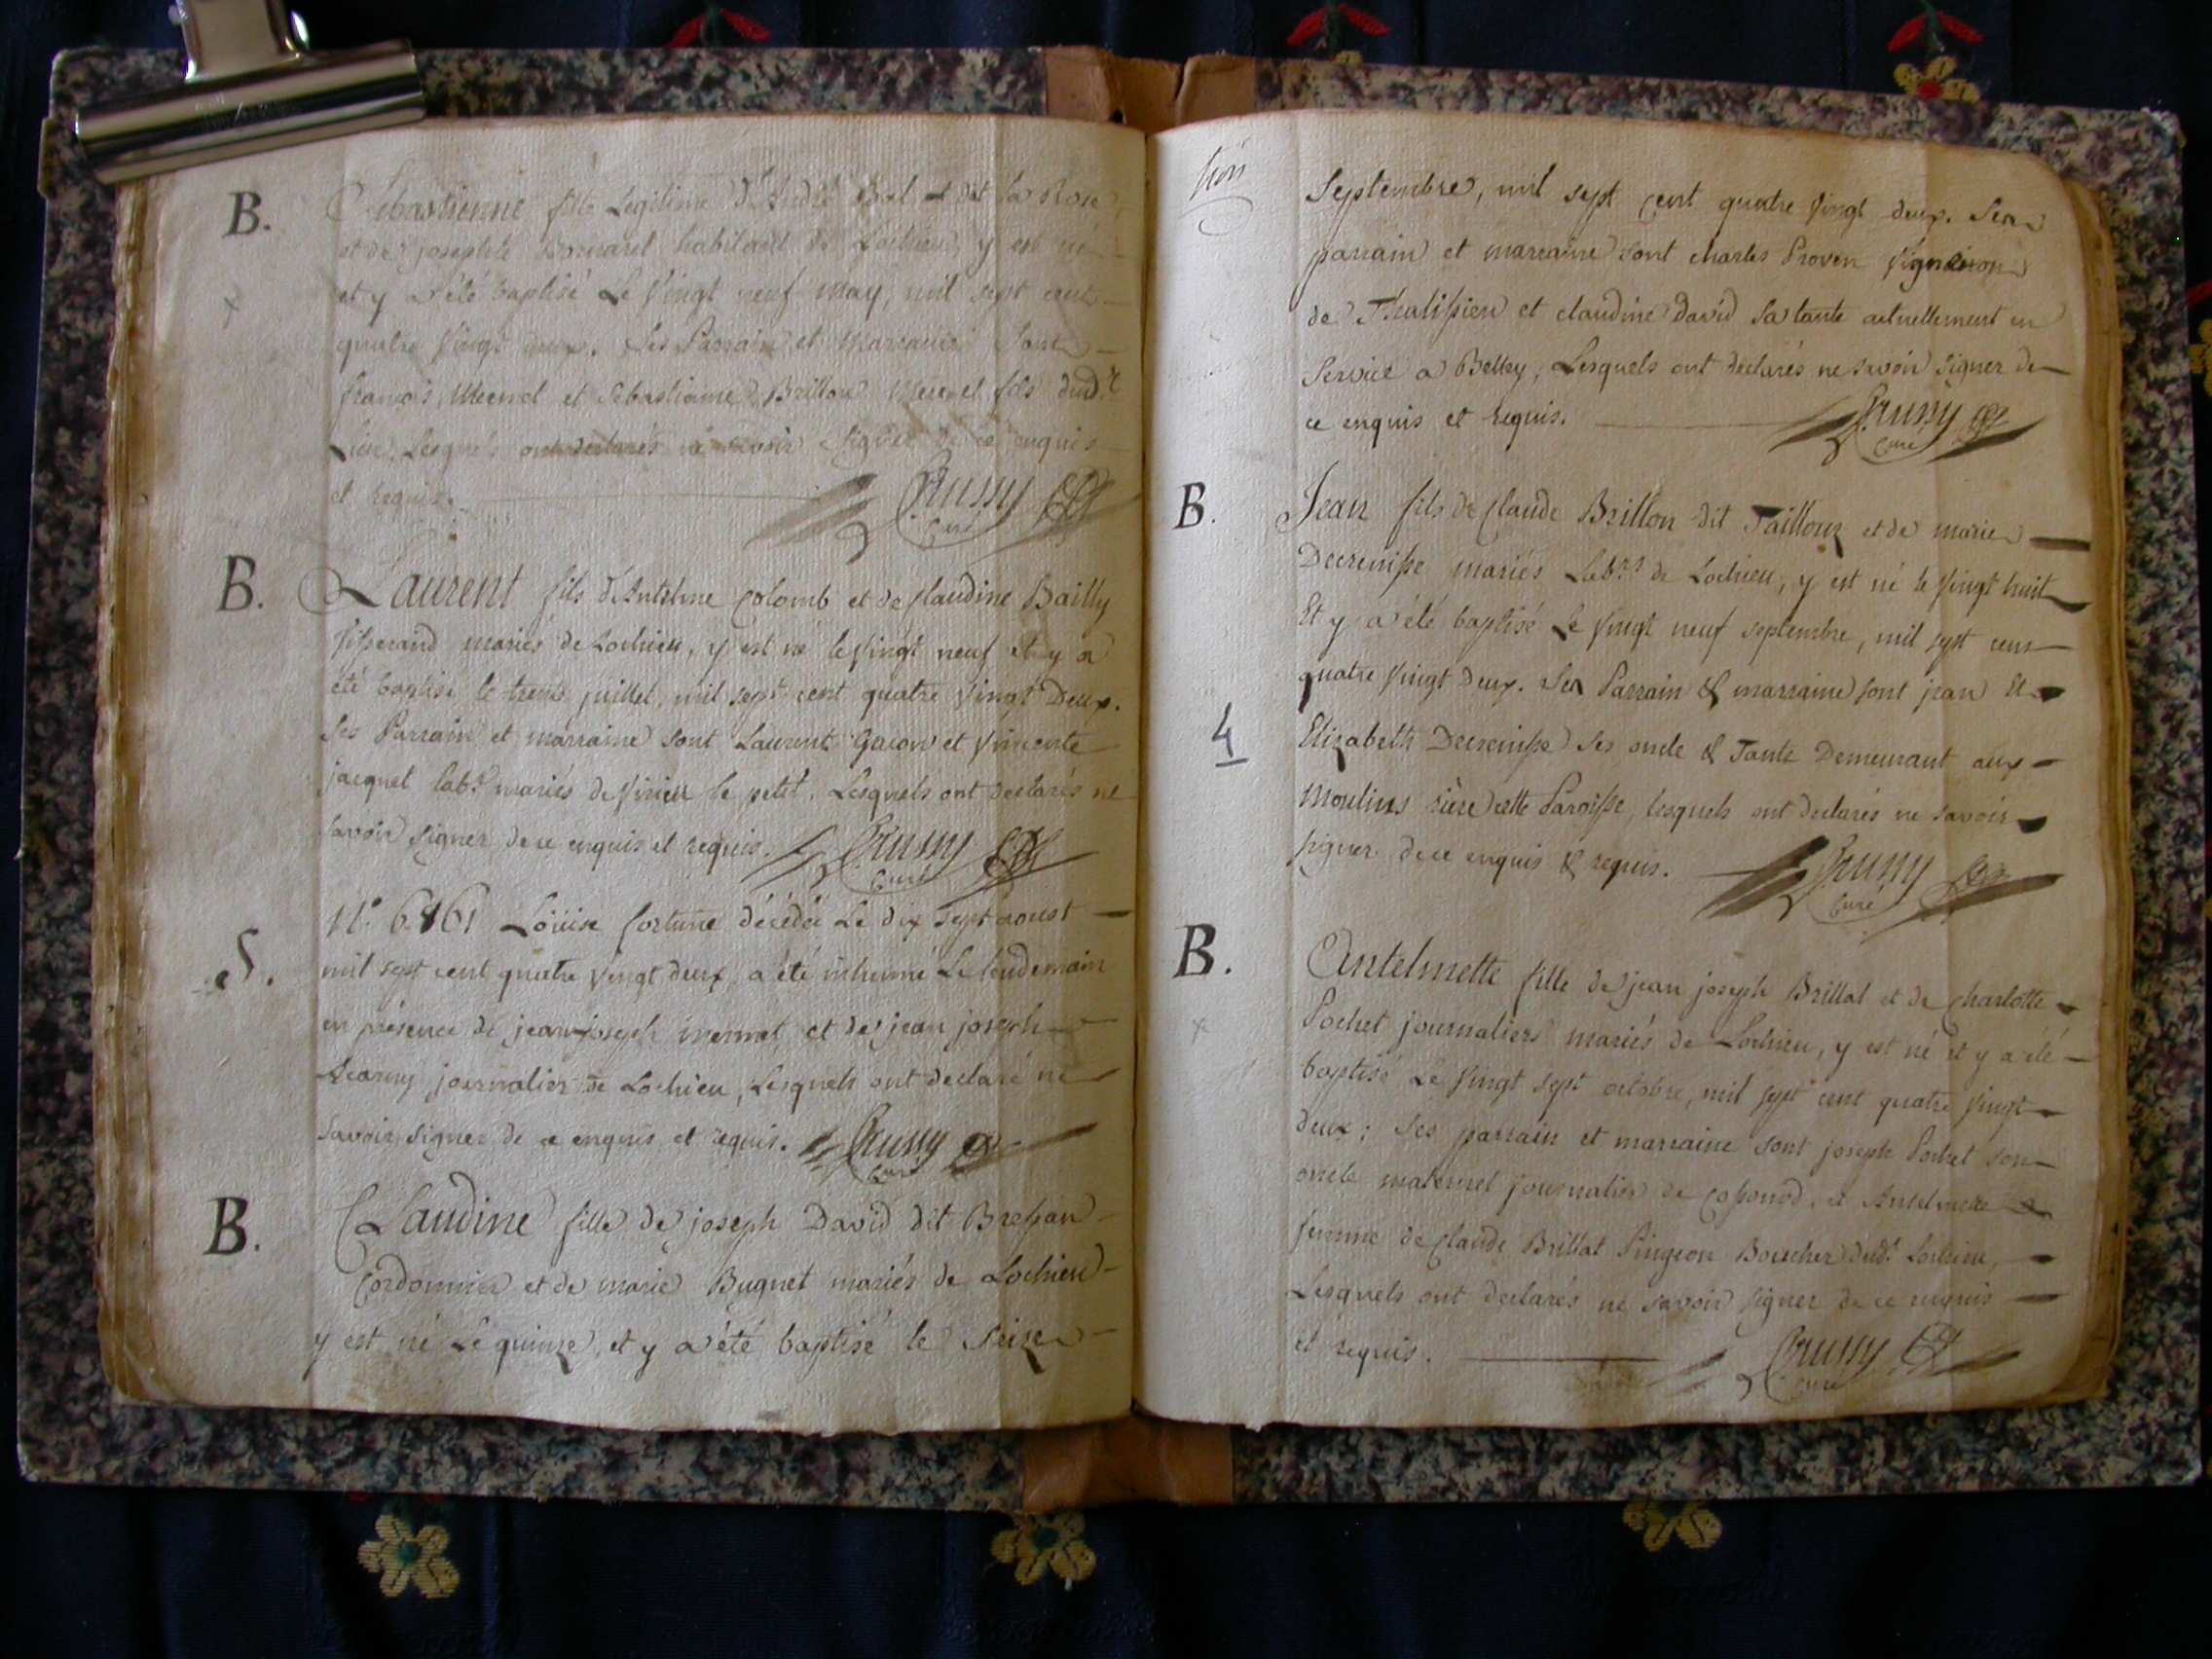 B. Sébastienne fille Legitime d'André Bal dit la Rose
et de josephte habitant de Lochieu, y est né
et y a été baptisé Le Vingt neuf May, mil sept cent
quatre Vingt deux. Ses Parrain et Marraine Sont
françois Mermet et Sebastienne Brillon Mermet fils dud.t
Lieu, Lesquels ont declarés ne savoir Signer de ce enquis
et requis. Crussy
Curé
B. Laurent fils d'Antelme Colomb et de Claudine Bailly
tisserand mariés de Lochieu, y est né le Vingt neuf et y a
été baptisé le trente juillet, mil sept cent quatre Vingt Deux.
Ses Parrain et marraine sont Laurent Gacon et Vincente
jacquet lab.r mariés de Virieu le petit. Lesquels ont declarés ne
savoir Signer de ce enquis et requis. Crussy
Curé
S. N.° 6861 Loüise fortune décédée Le dix sept aoust
mil sept cent quatre Vingt deux, a été inhumé Le lendemain
en présence de jean joseph mermet et de jean joseph
journalier de Lochieu, Lesquels ont declaré ne
savoir signer de ce enquis et requis. Crussy
Curé
B. Claudine fille de joseph David dit Bressan
Cordonnier et de marie Bugnet mariés de Lochieu
y est né Le quinze, et y a été baptisé le Seize
Septembre, mil sept cent quatre Vingt deux. Ses
parrain et marraine sont charles Proven Vigneron
de et claudine David Sa tante actuellement en
Service a Belley, Lesquels ont declarés ne savoir Signer de
ce enquis et requis. Crussy
Curé
B. Jean fils de Claude Brillon dit Tailleur et de marie
Decremisse mariés Lab.rs de Lochieu, y est né le Vingt huit
Et y a été baptisé Le Vingt neuf septembre, mil sept cens
quatre Vingt Deux. Ses Parrain & marraine sont jean Et
4 Elizabeth Decremisse Ses oncle & Tante Demeurant aux
Moulins rière cette Paroisse, lesquels ont declarés ne savoir
signer de ce enquis & requis. Crussy
Curé
B. Antelmette fille de jean joseph Brillat et de Charlotte
Pochet journaliers mariés de Lochieu, y est né et y a été
baptisé Le Vingt sept octobre, mil sept cent quatre Vingt
deux; Ses parrain et marraine sont joseph Pochet son
oncle maternel journalier de et Antelmette
femme de Claude Brillat Pingeon Boucher dud.t Lochieu,
Lesquels ont declarés ne savoir signer de ce enquis
et requis. Crussy
Curé